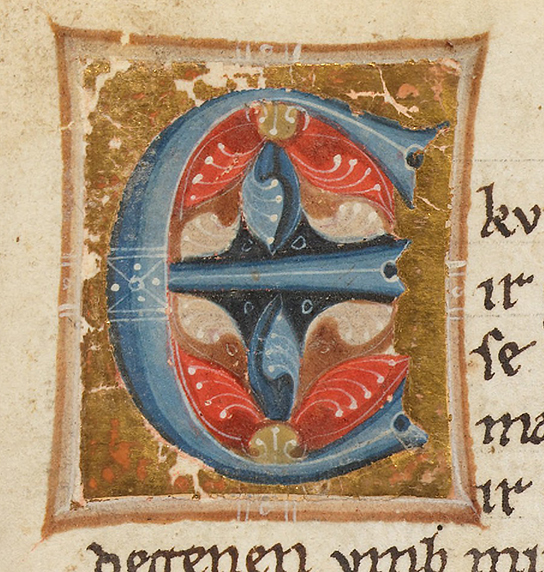 E
kv
ir
se
ma
ir
degenen vmb mi